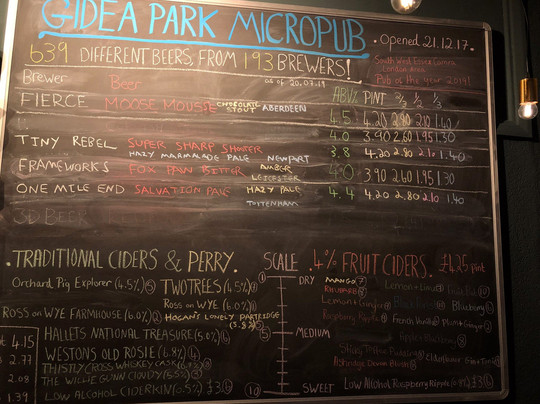 GIDEA PARK MICROPUB
. Opened 21.12.17.
639 DIFFERENT BEERS, FROM 193 BREWERS!
South West Essex Camra
London Area
Pub of the Year 2019!
as of 20.07.19
Brewer Beer ABV% PINT 2/3 1/2 1/3
FIERCE MOOSE MOUSSE CHOCOLATE STOUT ABERDEEN 4.5 4.20 2.80 2.10 1.40
4.0 3.90 2.60 1.95 1.30
TINY REBEL SUPER SHARP SHOOTER
HAZY MARMALADE PALE NEWPORT 3.8 4.20 2.80 2.10 1.40
FRAMEWORKS FOX PAW BITTER AMBER
LEICESTER 4.0 3.90 2.60 1.95 1.30
ONE MILE END SALVATION PALE HAZY PALE 4.4 4.20 2.80 2.10 1.40
TOTTENHAM
3D BEER
. TRADITIONAL CIDERS & PERRY.
Orchard Pig Explorer (4.5%) TWO TREES (4.5%)
ROSS ON WYE (6.0%)
ROSS ON WYE FARMHOUSE (6.0%) HOGAN'S LONELY PARTRIDGE
(5.8%)
HALLETS NATIONAL TREASURE (5.0%) 6
WESTONS OLD ROSIE (6.8%)
THISTLY CROSS WHISKEY CASK
THE WILLIE GUNN CLOUDY (5.5%)
LOW ALCOHOL CIDERKIN (0.5%) £3
4.15
2.77
2.08
1.39
SCALE
1
DRY
5
MEDIUM
10
SWEET
. 4% FRUIT CIDERS. £4.25 pint
MANGO 7 Lemon + Lime
RHUBARB
Lemon + Ginger Blueberry
Raspberry Ripple French Vanilla Plum + Ginger
Sticky Toffee Pudding Elderflower
Ashridge Devon Blush
Low Alcohol Raspberry Ripple £3